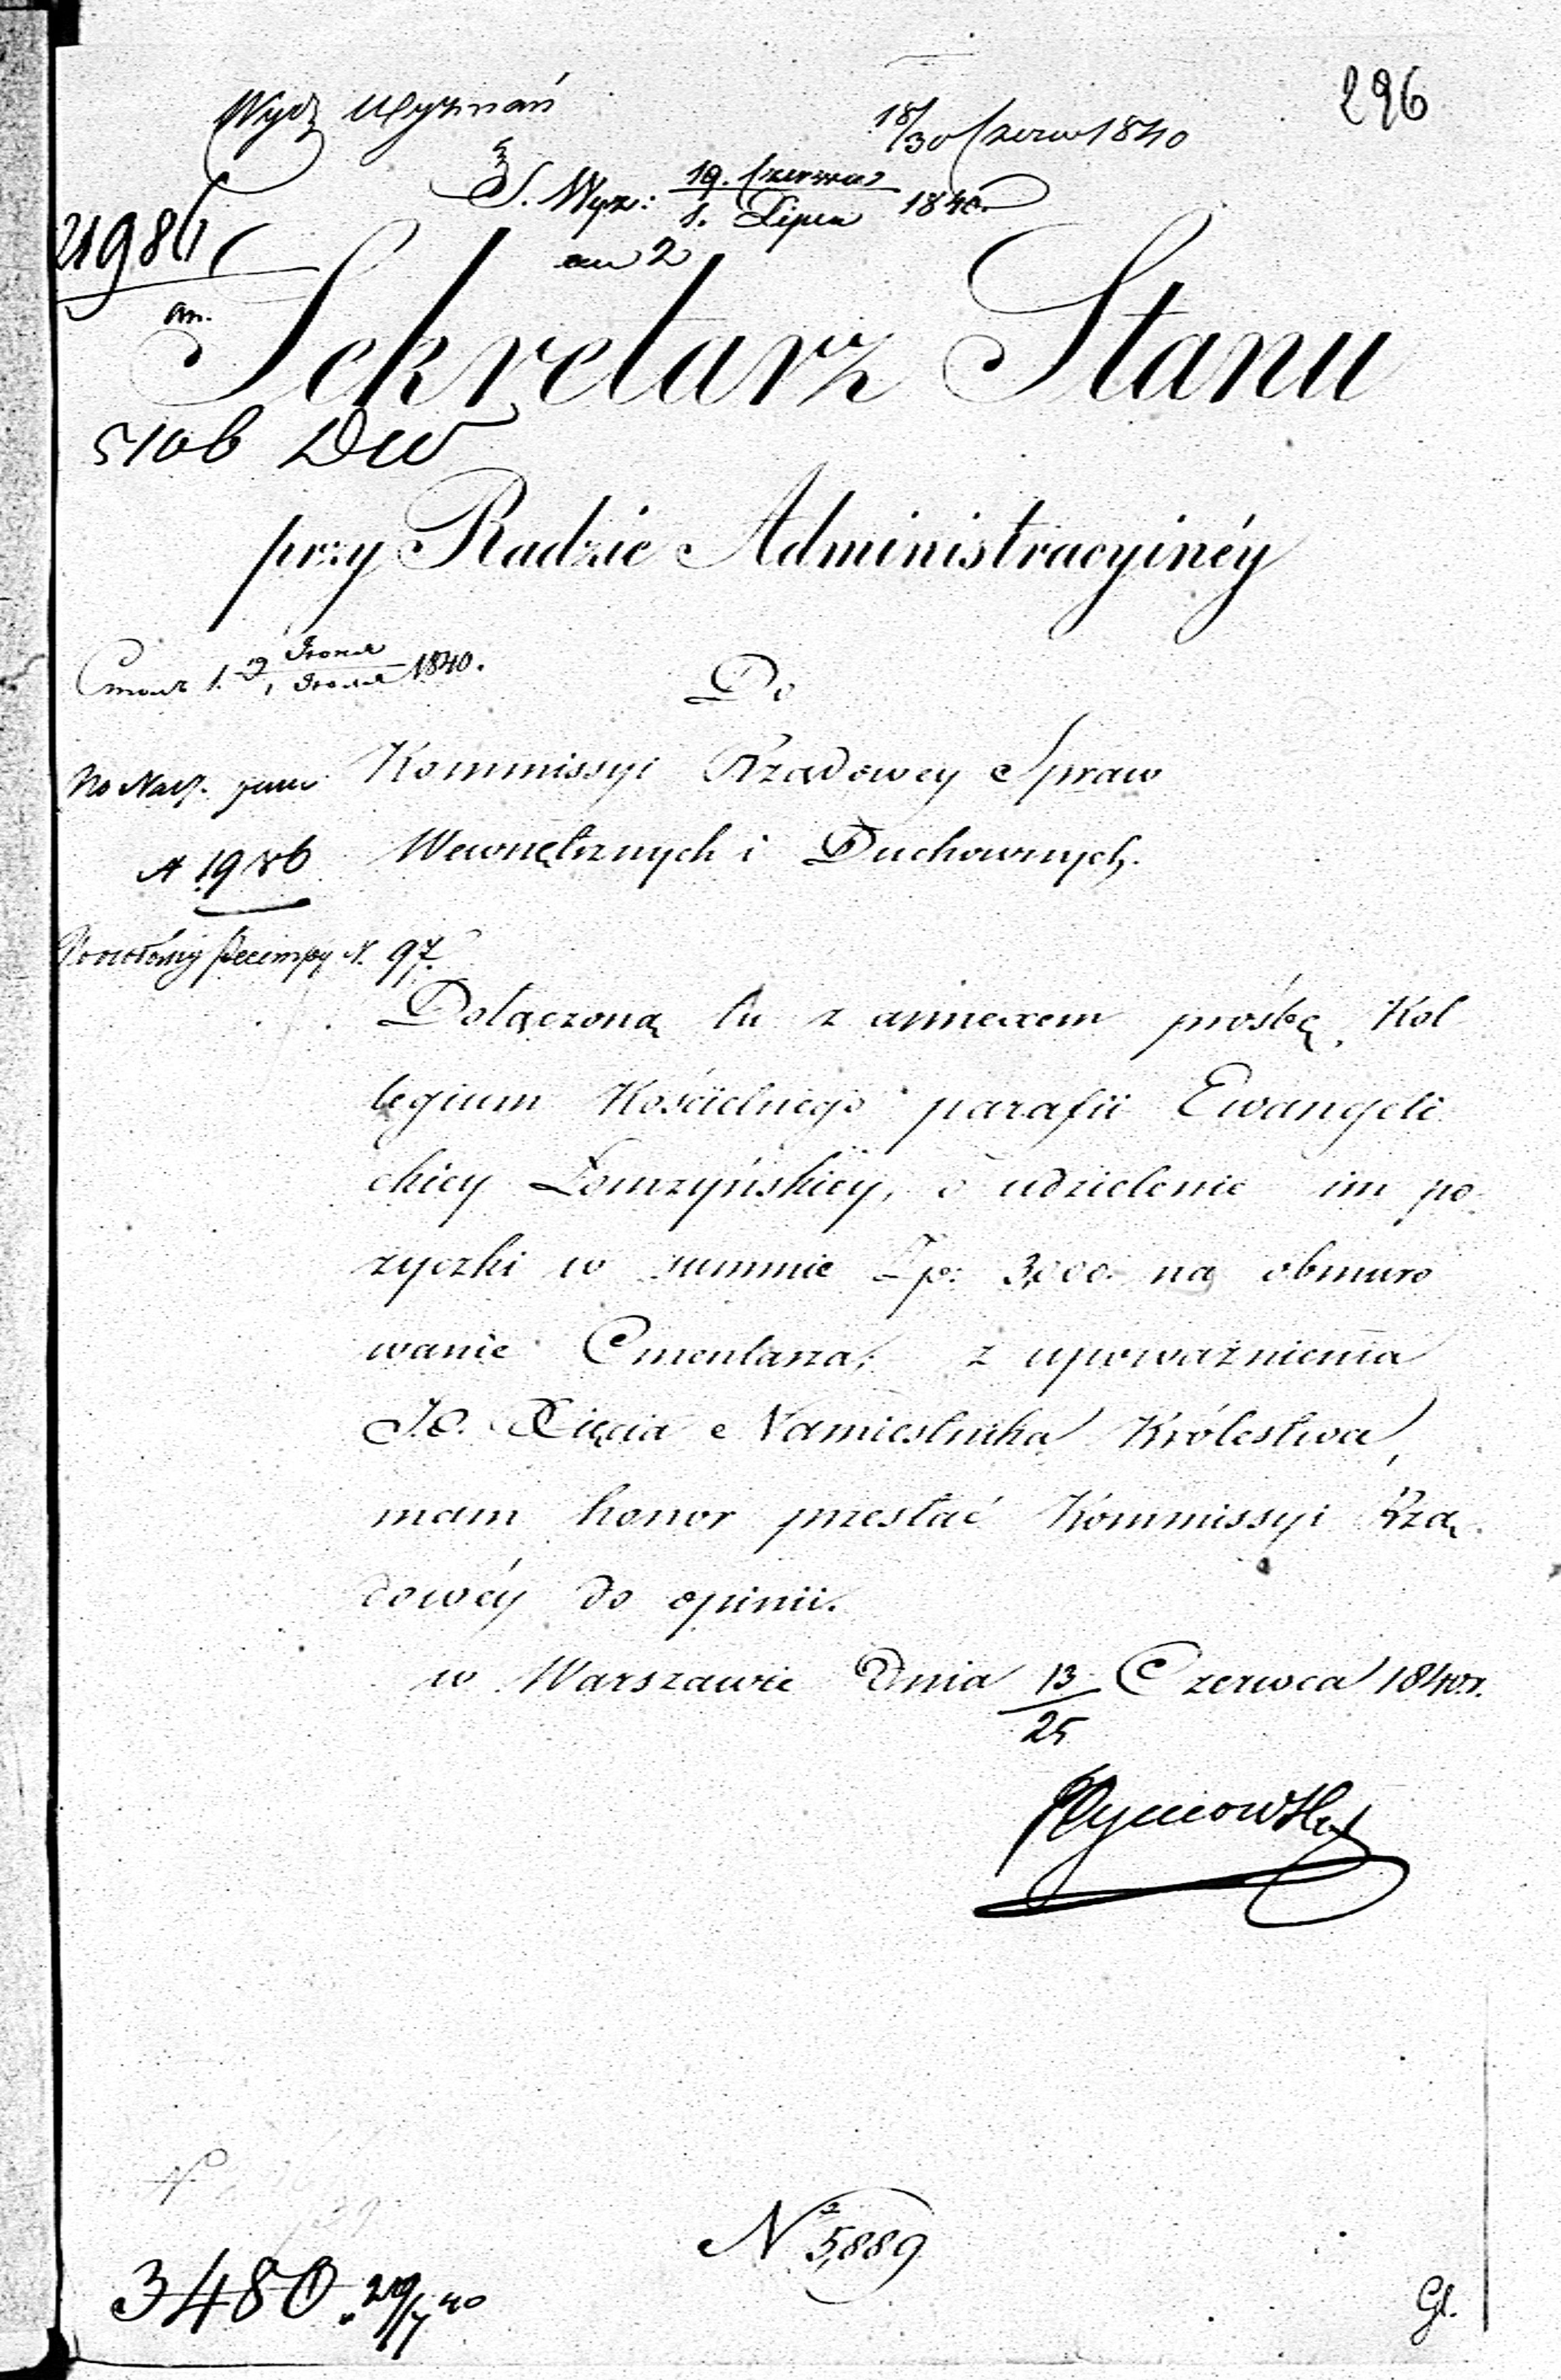 296
Wydz Wyznań
18/30 Czerw 1840
S. Wyz: 19. Czerwca / 1. Lipca 1840.
an 2
21986
an.
Sekretarz Stanu
5106 DW
przy Radzie Administracyinéy
1840.
Do
Kommissyi Rządowey Spraw
Wewnętrznych i Duchownych.
N. 97.
Dołączoną tu z annexem prośbę Kol
legium Kościelnego parafii Ewangeli
ckiey Łomżyńskiey, o udzielenie im po
życzki w summie Zp: 3,000 na obmuro
wanie Cmentarza; z upoważnienia
J.O. Xięcia Namiestnika Królestwa,
mam honor przesłać Kommissyi Rzą
dowéy do opinii.
w Warszawie Dnia 13/25 Czerwca 1840 r.
N 5,889
3480. 29/7 40
Gl.